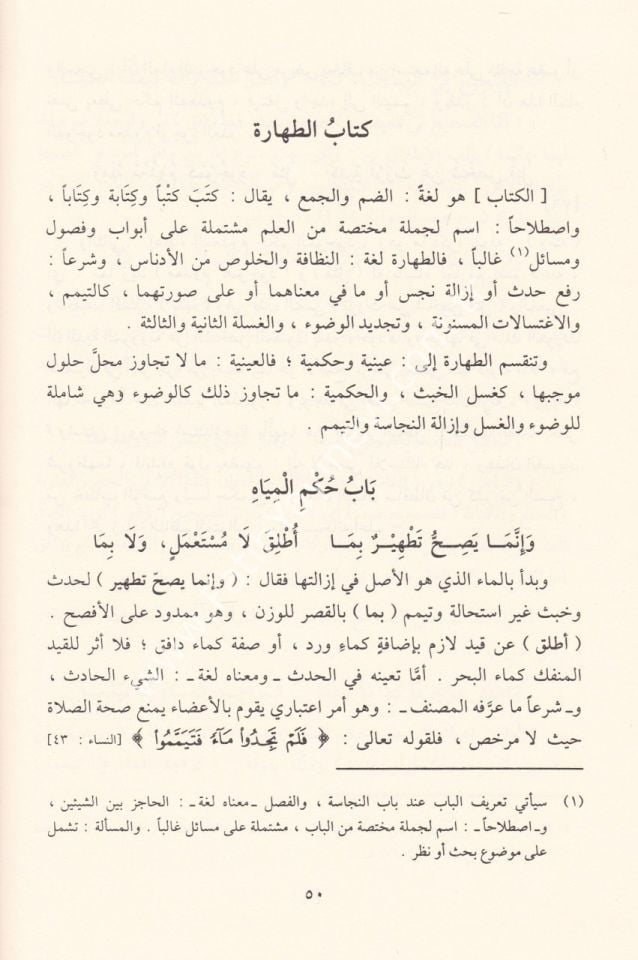 كتابُ الطهارة
[ الكتاب ] هو لغةً : الضم والجمع ، يقال : كتَبَ كتْباً وكِتابة وكِتاباً ،
واصطلاحاً : اسم لجملة مختصة من العلم مشتملة على أبواب وفصول
ومسائل(١) غالباً ، فالطهارة لغة : النظافة والخلوص من الأدناس ، وشرعاً :
رفع حدث أو إزالة نجس أو ما في معناهما أو على صورتهما ، كالتيمم ،
والاغتسالات المسنونة ، وتجديد الوضوء ، والغسلة الثانية والثالثة .
وتنقسم الطهارة إلى : عينية وحكمية ؛ فالعينية : ما لا تجاوز محلَّ حلول
موجبها ، كغسل الخبث ، والحكمية : ما تجاوز ذلك كالوضوء وهي شاملة
للوضوء والغسل وإزالة النجاسة والتيمم .
بَابُ حُكْمِ الْمِيَاهِ
وَإِنَّمَا يَصِحُّ تَطْهِيْرٌ بِمَا أُطْلِقَ لَا مُسْتَعْمَلٍ، وَلَا بِمَا
وبدأ بالماء الذي هو الأصل في إزالتها فقال : ( وإنما يصحّ تطهير ) لحدث
وخبث غير استحالة وتيمم ( بما ) بالقصر للوزن ، وهو ممدود على الأفصح .
( أطلق ) عن قيد لازم بإضافةٍ كماءِ ورد ، أو صفة كماء دافق ؛ فلا أثر للقيد
المنفك كماء البحر . أمَّا تعينه في الحدث ـ ومعناه لغة ـ : الشيء الحادث ،
و ـ شرعاً ما عرَّفه المصنف ـ : وهو أمر اعتباري يقوم بالأعضاء يمنع صحة الصلاة
حيث لا مرخص ، فلقوله تعالى : ﴿ فَلَمْ تَجِدُوا مَآءً فَتَيَمَّمُوا ﴾ [النساء : ٤٣]
(١) سيأتي تعريف الباب عند باب النجاسة ، والفصل ـ معناه لغة ـ : الحاجز بين الشيئين ،
و ـ اصطلاحاً ـ : اسم لجملة مختصة من الباب ، مشتملة على مسائل غالباً . والمسألة : تشمل
على موضوع بحث أو نظر .
٥٠